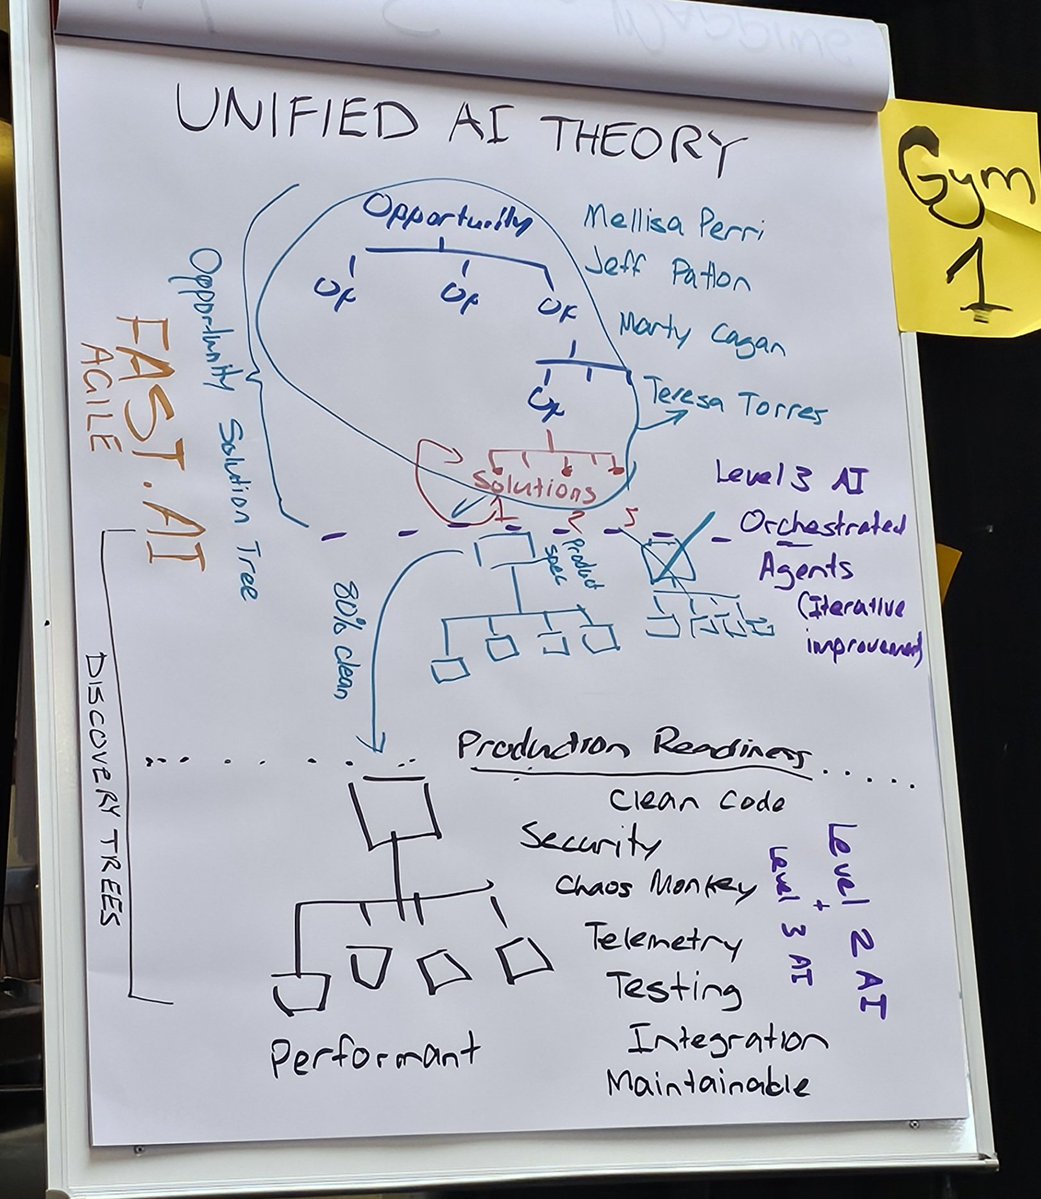 UNIFIED AI THEORY
Gym
1
Opportunity
OX
OX
OX
OX
Mellisa Perri
Jeff Patton
Marty Cagan
Teresa Torres
Opportunity Solution Tree
FAST.AI
AGILE
Solutions
1
2
3
Product
spec
80% clean
Level 3 AI
Orchestrated
Agents
(Iterative
improvement)
DISCOVERY TREES
Production Readiness
Clean Code
Security
Chaos Monkey
Telemetry
Testing
Integration
Maintainable
Performant
Level 2 AI
+
Level 3 AI